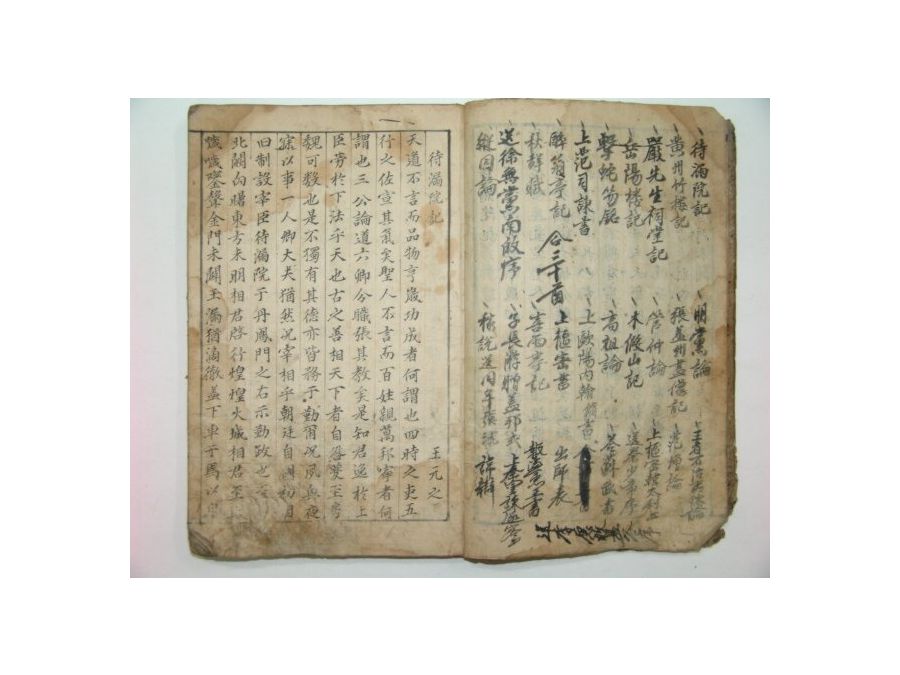 待漏院記
黄州竹樓記
嚴先生祠堂記
岳陽樓記
擊蛇笏銘
上范司諫書
醉翁亭記
秋聲賦
送徐無黨南敀序
縱囚論
合三十首
朋黨論
張益州畫像記
管仲論
范增論
木假山記
上樞密韓太尉
高祖論
送秦少章序
上歐陽内翰書
上樞密書
喜雨亭記
出師表
稼說送同年張琥
諱辯
待漏院記
王元之
天道不言而品物亨歲功成者何謂也四時之吏五
行之佐宣其氣矣聖人不言而百姓親萬邦寧者何
謂也三公論道六卿分職張其教矣是知君逸於上
臣勞於下法乎天也古之善相天下者自咎夔至房
魏可数也是不獨有其德亦皆務于勤爾况夙興夜
寐以事一人卿大夫猶然况宰相乎朝廷自國初因
舊制設宰臣待漏院于丹鳳門之右示勤政也
北闕向曙東方未明相君啓行煌煌火城相君至止
噦噦鑾聲金門未闢玉漏猶滴徹盖下車于焉以